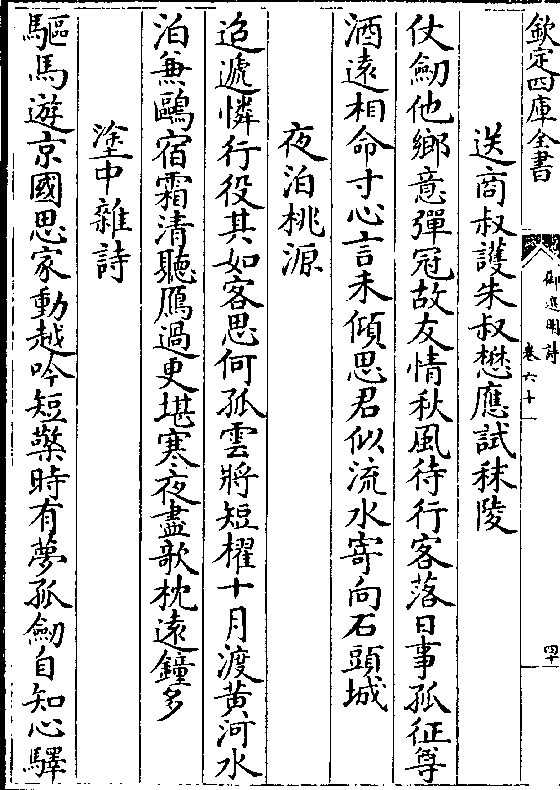 欽定四庫全書
御選明詩
卷六十一
四十
送商叔護朱叔懋應試秣陵
仗劒他鄉意彈冠故友情秋風待行客落日事孤征尊
酒遠相命寸心言未傾思君似流水寄向石頭城
夜泊桃源
迢遞憐行役其如客思何孤雲將短櫂十月渡黄河水
泊兼鷗宿霜清聽鴈過更堪寒夜盡欹枕遠鐘多
塗中雜詩
驅馬遊京國思家動越吟短蘖時有夢孤劒自知心驛